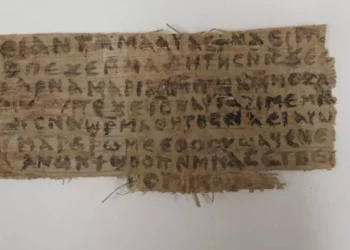 ⲉⲓ ⲁⲛ ⲧⲁⲙⲁⲁⲩ ⲁⲥϯ ⲛⲁⲉⲓ ⲡⲱ
ⲥ ⲡⲉϫⲉ ⲙⲙⲁⲑⲏⲧⲏⲥ ⲛⲓⲥ ϫⲉ ⲥ
ⲁⲣⲛⲁ ⲙⲁⲣⲓⲁⲙ ⲙⲡϣⲁ ⲙⲙⲟⲥ ⲁ
ⲡⲉϫⲉ ⲓⲥ ⲛⲁⲩ ⲧⲁϩⲓⲙⲉ ⲙⲛ
ⲥⲛⲁϣⲣⲙⲁⲑⲏⲧⲏⲥ ⲛⲁⲉⲓ ⲁⲩⲱ
ⲓ ⲙⲁⲣⲉⲣⲱⲙⲉ ⲉⲑⲟⲟⲩ ϣⲁϥⲉⲛⲉ
ⲁⲛⲟⲕ ϯϣⲟⲟⲡ ⲛⲙⲙⲁⲥ ⲉⲧⲃⲉ ⲡ